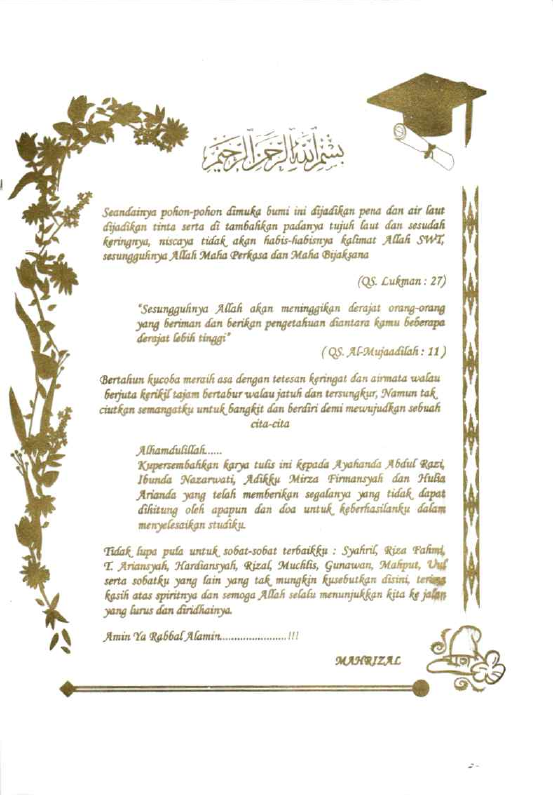 بسم الله الرحمن الرحيم
Seandainya pohon-pohon dimuka bumi ini dijadikan pena dan air laut
dijadikan tinta serta di tambahkan padanya tujuh laut dan sesudah
keringnya, niscaya tidak akan habis-habisnya kalimat Allah SWT,
sesungguhnya Allah Maha Perkasa dan Maha Bijaksana
(QS. Lukman : 27)
"Sesungguhnya Allah akan meninggikan derajat orang-orang
yang beriman dan berikan pengetahuan diantara kamu beberapa
derajat lebih tinggi"
( QS. Al-Mujaadilah : 11 )
Bertahun kucoba meraih asa dengan tetesan keringat dan airmata walau
berjuta kerikil tajam bertabur walau jatuh dan tersungkur, Namun tak
ciutkan semangatku untuk bangkit dan berdiri demi mewujudkan sebuah
cita-cita
Alhamdulillah......
Kupersembahkan karya tulis ini kepada Ayahanda Abdul Razi,
Ibunda Nazarwati, Adikku Mirza Firmansyah dan Hulia
Arianda yang telah memberikan segalanya yang tidak dapat
dihitung oleh apapun dan doa untuk keberhasilanku dalam
menyelesaikan studiku.
Tidak lupa pula untuk sobat-sobat terbaikku : Syahril, Riza Fahmi,
T. Ariansyah, Hardiansyah, Rizal, Muchlis, Gunawan, Mahput,
serta sobatku yang lain yang tak mungkin kusebutkan disini, terima
kasih atas spiritnya dan semoga Allah selalu menunjukkan kita ke jalan
yang lurus dan diridhainya.
Amin Ya Rabbal Alamin.......................!!!
MAHRIZAL